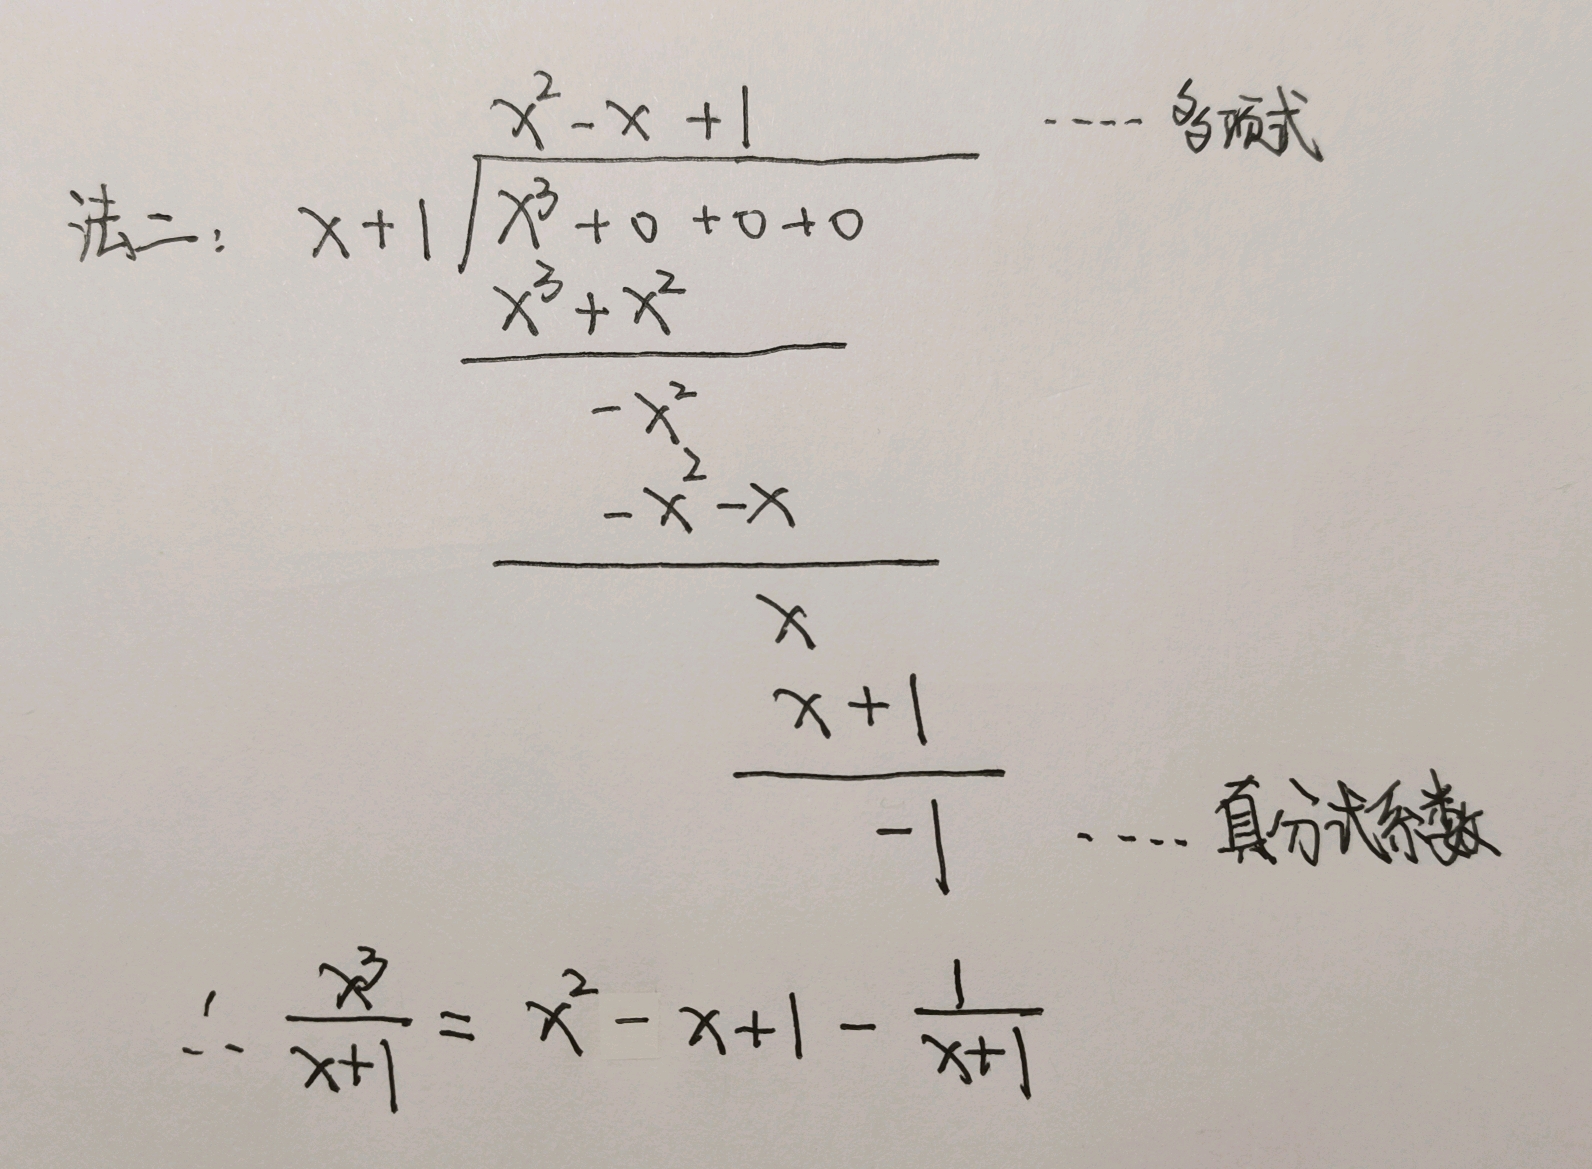 x² - x + 1 ---- 多项式
法二: x+1 x³ + 0 + 0 + 0
x³ + x²
- x²
- x² - x
x
x + 1
-1 ---- 真分式系数
∴ x³/(x+1) = x² - x + 1 - 1/(x+1)